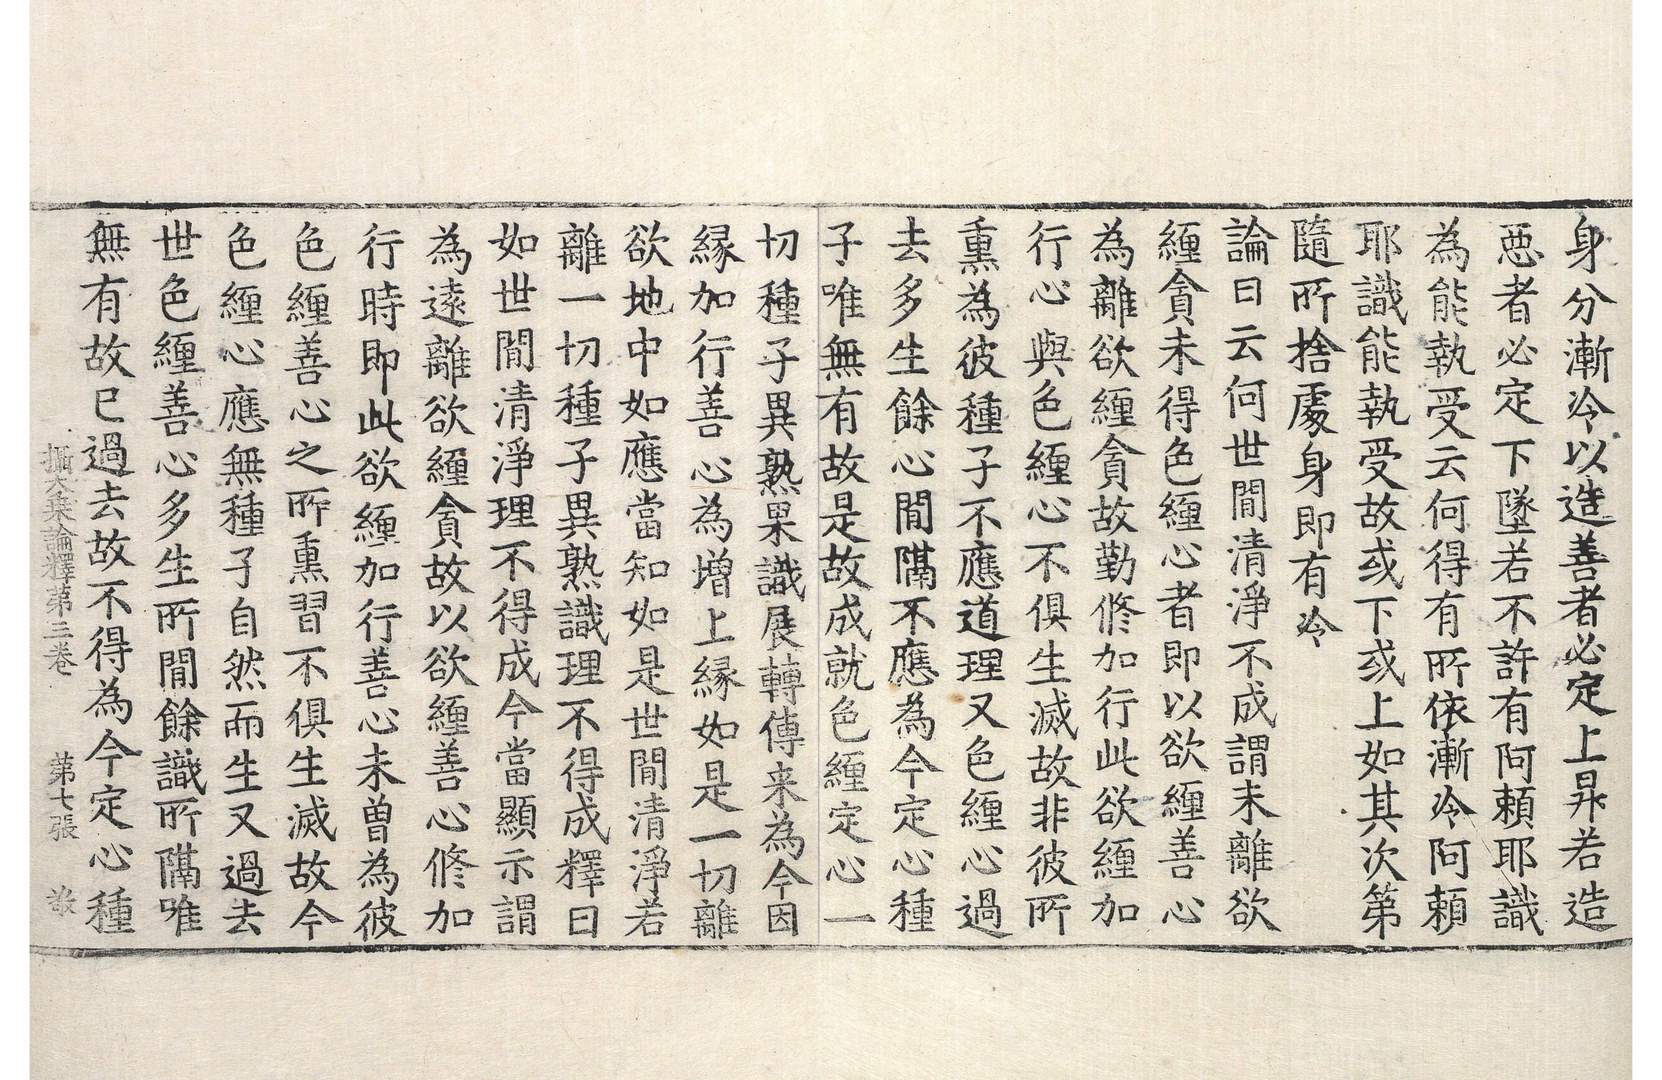 身分漸冷以造善者必定上昇若造
惡者必定下墜若不許有阿頼耶識
為能執受云何得有所依漸冷阿頼
耶識能執受故或下或上如其次第
隨所捨處身即有冷
論曰云何世間清淨不成謂未離欲
纏貪未得色纏心者即以欲纏善心
為離欲纏貪故勤修加行此欲纏加
行心與色纏心不俱生滅故非彼所
熏為彼種子不應道理又色纏心過
去多生餘心間隔不應為今定心種
子唯無有故是故成就色纏定心一
切種子異熟果識展轉傳来為今因
縁加行善心為增上縁如是一切離
欲地中如應當知如是世間清淨若
離一切種子異熟識理不得成釋曰
如世間清淨理不得成今當顯示謂
為遠離欲纏貪故以欲纏善心修加
行時即此欲纏加行善心未曽為彼
色纏善心之所熏習不俱生滅故今
色纏心應無種子自然而生又過去
世色纏善心多生所間餘識所隔唯
無有故已過去故不得為今定心種
攝大乗論釋第三卷 第七張 敬